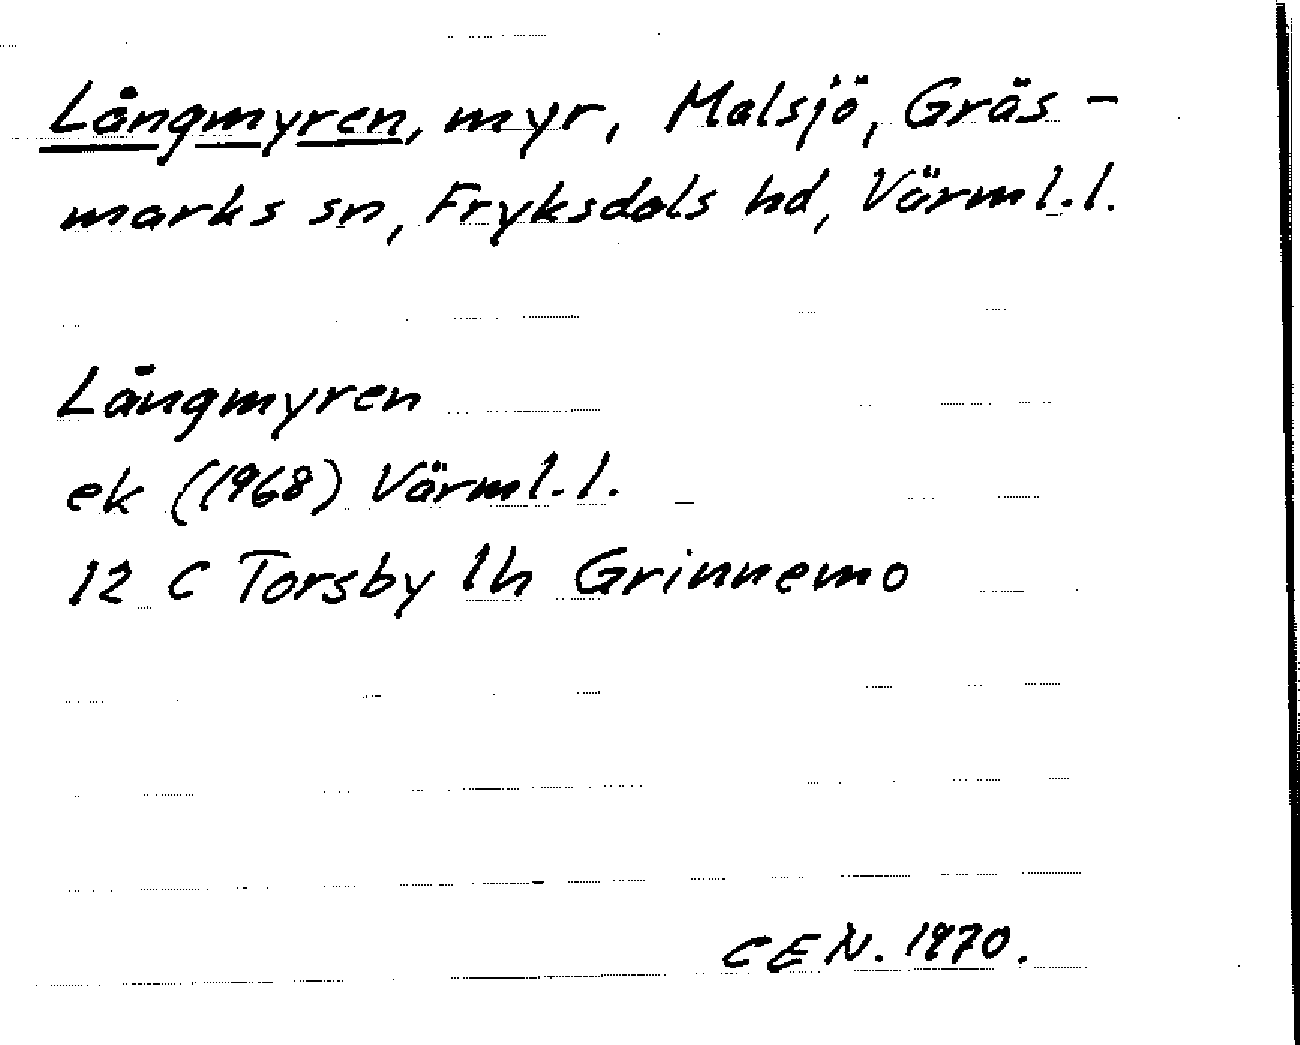 Långmyren, myr, Malsjö, Gräs-
marks sn, Fryksdals hd, Värml. l.
Långmyren
ek (1968) Värml. l.
12 C Torsby 1h Grinnemo
CEN. 1970.